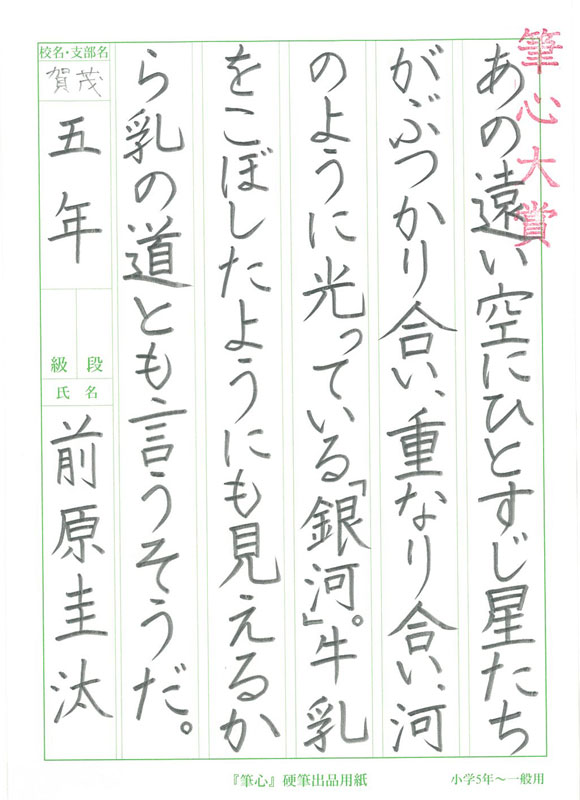 筆心大賞
あの遠い空にひとすじ星たち
がぶつかり合い、重なり合い、河
のように光っている「銀河」。牛乳
をこぼしたようにも見えるか
ら乳の道とも言うそうだ。
校名・支部名
賀茂
五年
級 段
氏名
前原圭汰
『筆心』硬筆出品用紙
小学5年〜一般用